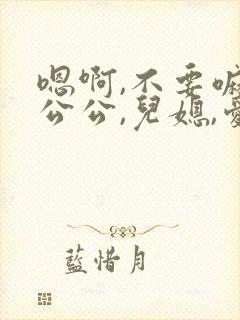 嗯啊,不要嘛
公公,兒媳,愛
藍惜月